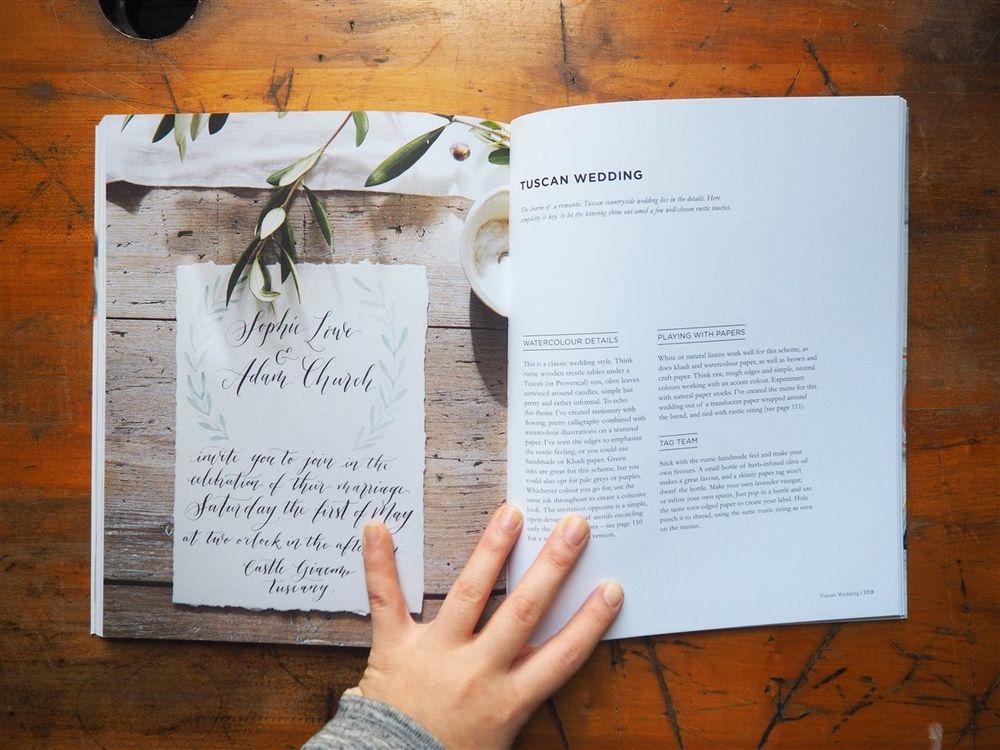 Sophie Lowe
&
Adam Church
invite you to join in the
celebration of their marriage
Saturday the first of May
at two o'clock in the
Castle Giacomo
Tuscany
TUSCAN WEDDING
The charm of a romantic Tuscan countryside wedding lies in the details. Here
simplicity is key, so let the lettering shine out amid a few well-chosen rustic touches.
WATERCOLOUR DETAILS
This is a classic wedding style. Think
rustic wooden trestle tables under a
Tuscan (or Provençal) sun, olive leaves
entwined around candles, simple but
pretty and rather informal. To echo
this theme I've created stationery with
flowing, pretty calligraphy combined with
watercolour illustrations on a textured
paper. I've torn the edges to emphasize
the rustic feeling, or you could use
handmade or Khadi paper. Green
inks are great for this scheme, but you
could also opt for pale greys or purples.
Whichever colour you go for, use the
same ink throughout to create a cohesive
look. The invitation opposite is a simple,
open design of motifs encircling
only the – see page 110
for a version.
PLAYING WITH PAPERS
White or natural linens work well for this scheme, as
does khadi and watercolour paper, as well as brown and
craft paper. Think raw, rough edges and simple, neutral
colours working with an accent colour. Experiment
with natural paper stocks. I've created the menu for this
wedding out of a translucent paper wrapped around
the bread, and tied with rustic string (see page 111).
TAG TEAM
Stick with the rustic handmade feel and make your
own favours. A small bottle of herb-infused olive oil
makes a great favour, and a skinny paper tag won't
dwarf the bottle. Make your own lavender vinegar,
or infuse your own spirits. Just pop in a bottle and use
the same torn-edged paper to create your label. Hole
punch it to thread, using the same rustic string as seen
on the menus.
Tuscan Wedding | 109